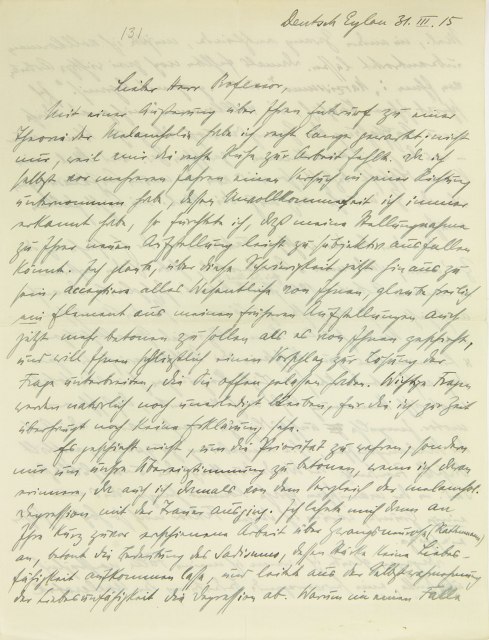 Deutsch Eylau 31. III. 15
131
Lieber Herr Professor,
Mit einer Äusserung über Ihren Entwurf zu einer
Theorie der Melancholie habe ich recht lange gewartet: nicht
nur, weil mir die rechte Ruhe zur Arbeit fehlte. Da ich
selbst vor mehreren Jahren einen Versuch in dieser Richtung
unternommen habe, dessen Unvollkommenheit ich immer
erkannt habe, so fürchtete ich, dass meine Stellungnahme
zu Ihrer neuen Aufstellung leicht zu subjektiv ausfallen
könnte. Ich glaube, über diese Schwierigkeit jetzt hinaus zu
sein, acceptiere alles Wesentliche von Ihnen, glaube freilich
ein Element aus meinen früheren Aufstellungen auch
jetzt mehr betonen zu sollen als es von Ihnen geschieht,
und will Ihnen schließlich einen Vorschlag zur Lösung der
Frage unterbreiten, die Sie offen gelassen haben. Wichtige Fragen
werden natürlich noch unerledigt bleiben, für die ich zur Zeit
überhaupt noch keine Erklärung sehe.
Es geschieht nicht, um die Priorität zu wahren, sondern
nur um unsre Übereinstimmung zu betonen, wenn ich daran
erinnere, daß auch ich damals von dem Vergleich der melanchol.
Depression mit der Trauer ausging. Ich lehnte mich dann an
Ihre kurz zuvor erschienene Arbeit über Zwangsneurose (Rattenmann)
an, betonte die Bedeutung des Sadismus, dessen Stärke keine Liebes-
fähigkeit aufkommen lasse, und leitete aus der Selbstwahrnehmung
der Liebesunfähigkeit die Depression ab. Warum in einem Falle